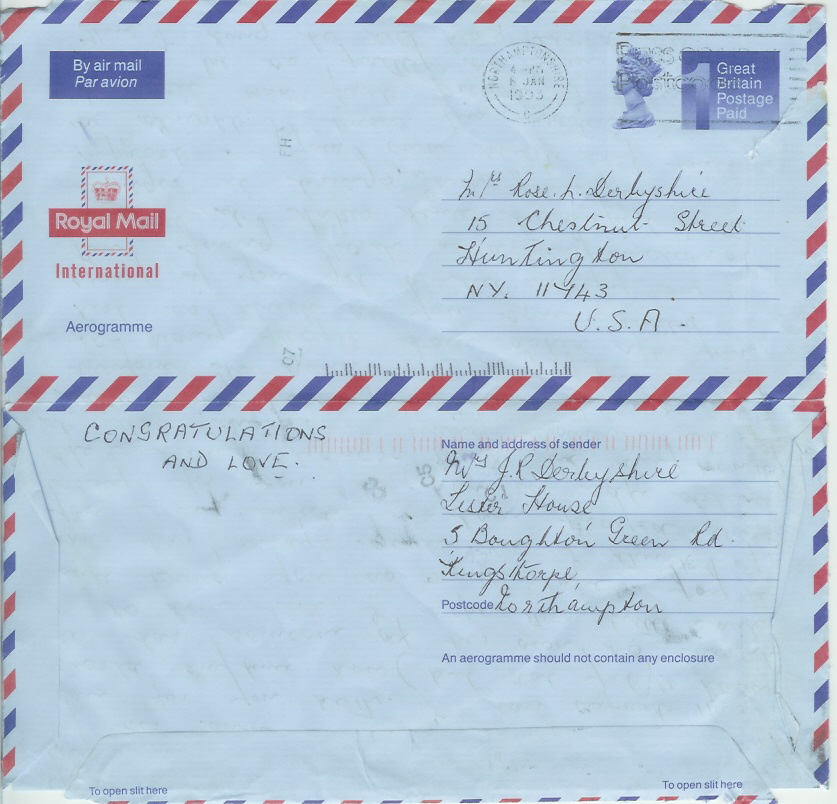 By air mail
Par avion
NORTHAMPTONSHIRE
6 JAN
Great
Britain
Postage
Paid
1
Royal Mail
International
Aerogramme
Mrs Rose. L. Derbyshire
15 Chestnut Street
Huntington
NY. 11743
U.S.A.
FH
C7
CONGRATULATIONS
AND LOVE.
Name and address of sender
Mrs J.R Derbyshire
Lister House
5 Boughton Green Rd.
Kingsthorpe,
Postcode Northampton
An aerogramme should not contain any enclosure
To open slit here
To open slit here